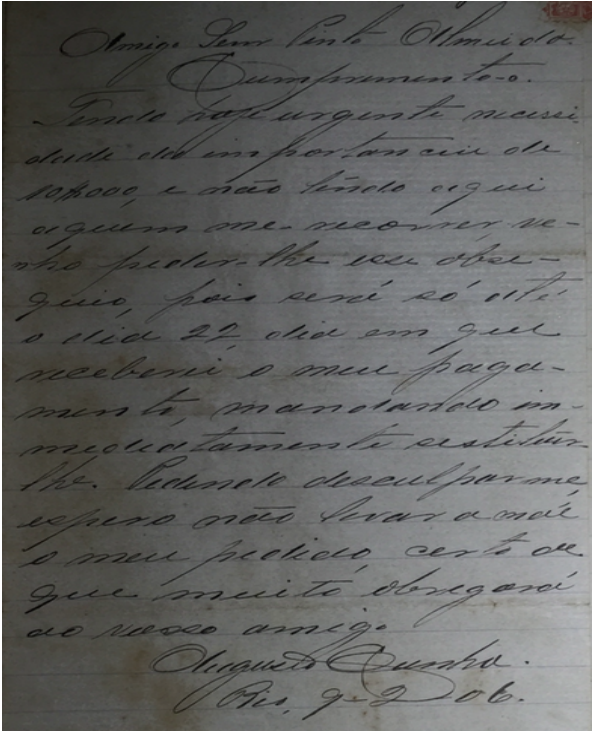 Amigo Senr Pinto Almeida.
Cumprimento-o.
Tendo hoje urgente necessi-
dade da importancia de
10$000, e não tendo aqui
aquem me recorrer ve-
nho pedir-lhe esse obse-
quio, pois será só até
o dia 22, dia em que
receberei o meu paga-
mento, mandando im-
mediatamente restituir-
lhe. Pedindo desculpar-me,
espero não levar a mál
o meu pedido, certo de
que muito obregará
ao vosso amigo
Augusto Cunha.
Rio, 9-2-06.